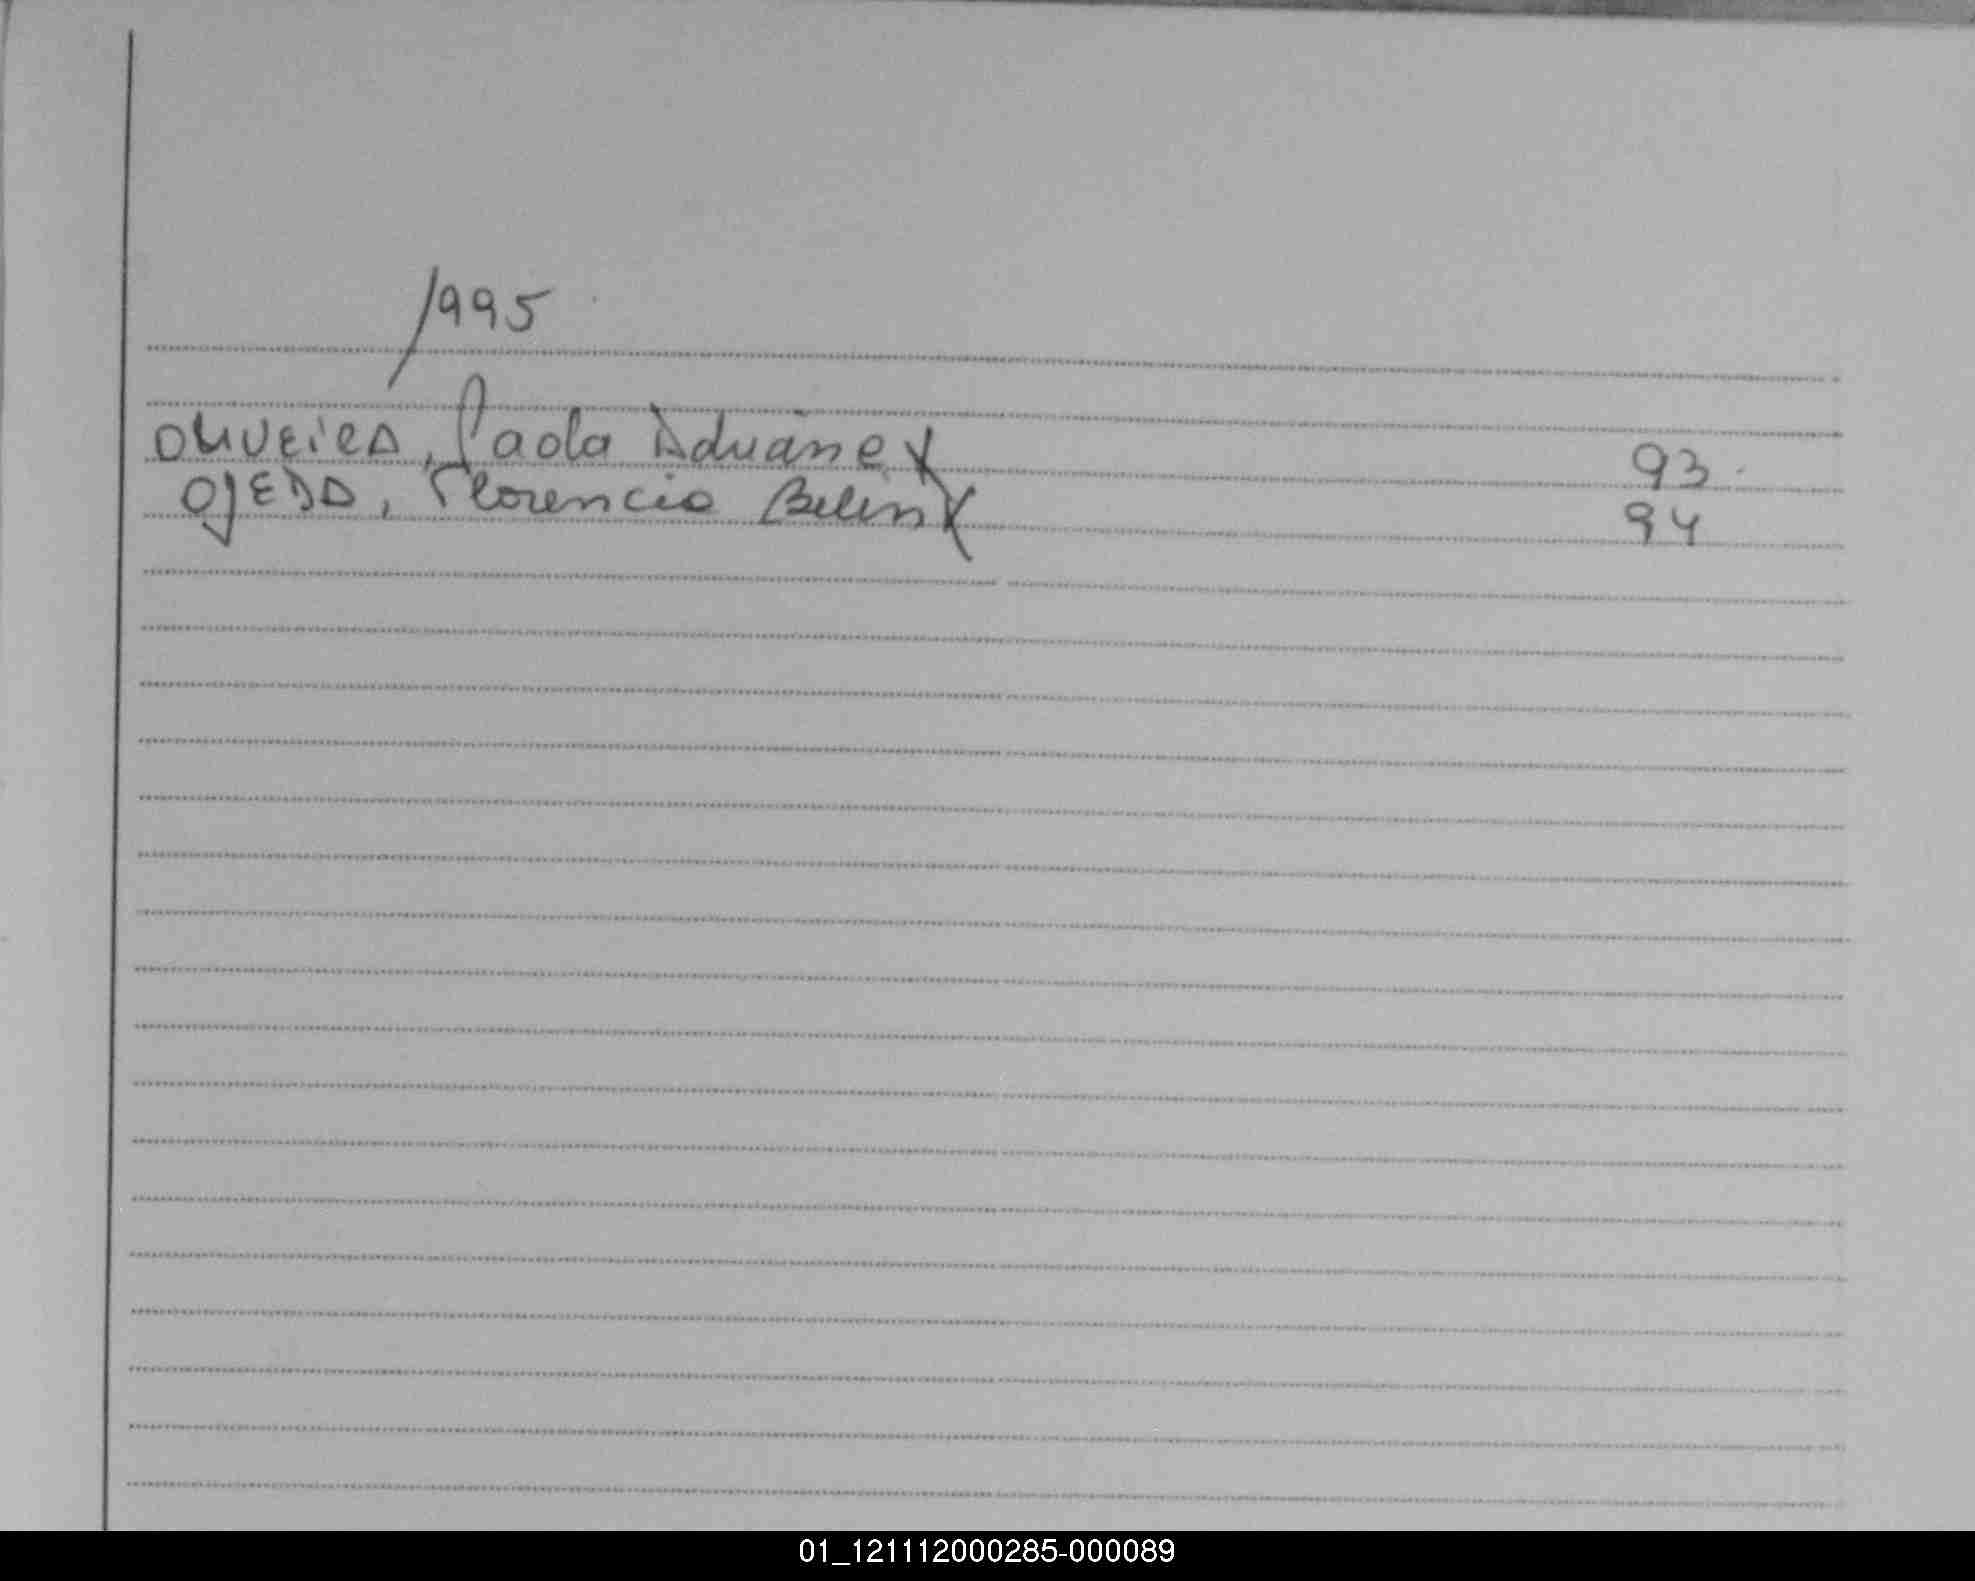 1995
OLIVEIRA, Paola Aduane X 93
OJEDA, Florencia Belen X 94
01_121112000285-000089